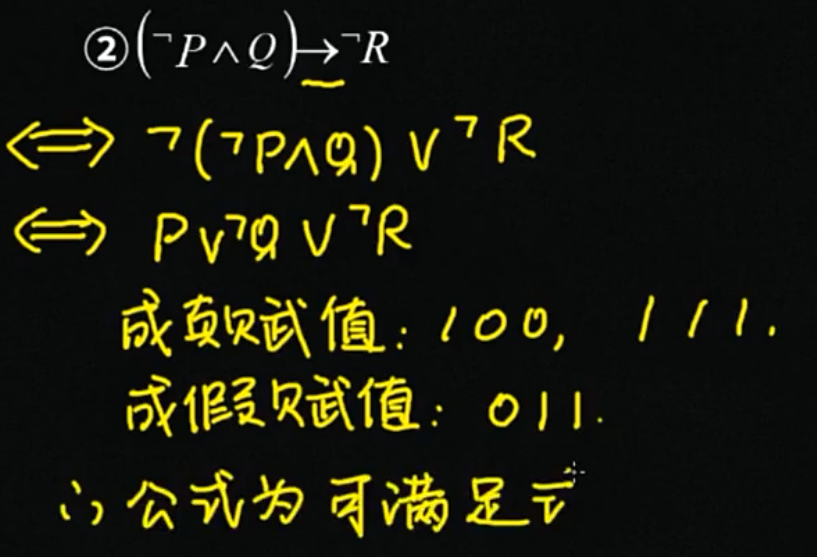 ②(¬P∧Q)→¬R
⟺ ¬(¬P∧Q)∨¬R
⟺ P∨¬Q∨¬R
成真赋值：100, 111.
成假赋值：011.
∴公式为可满足式